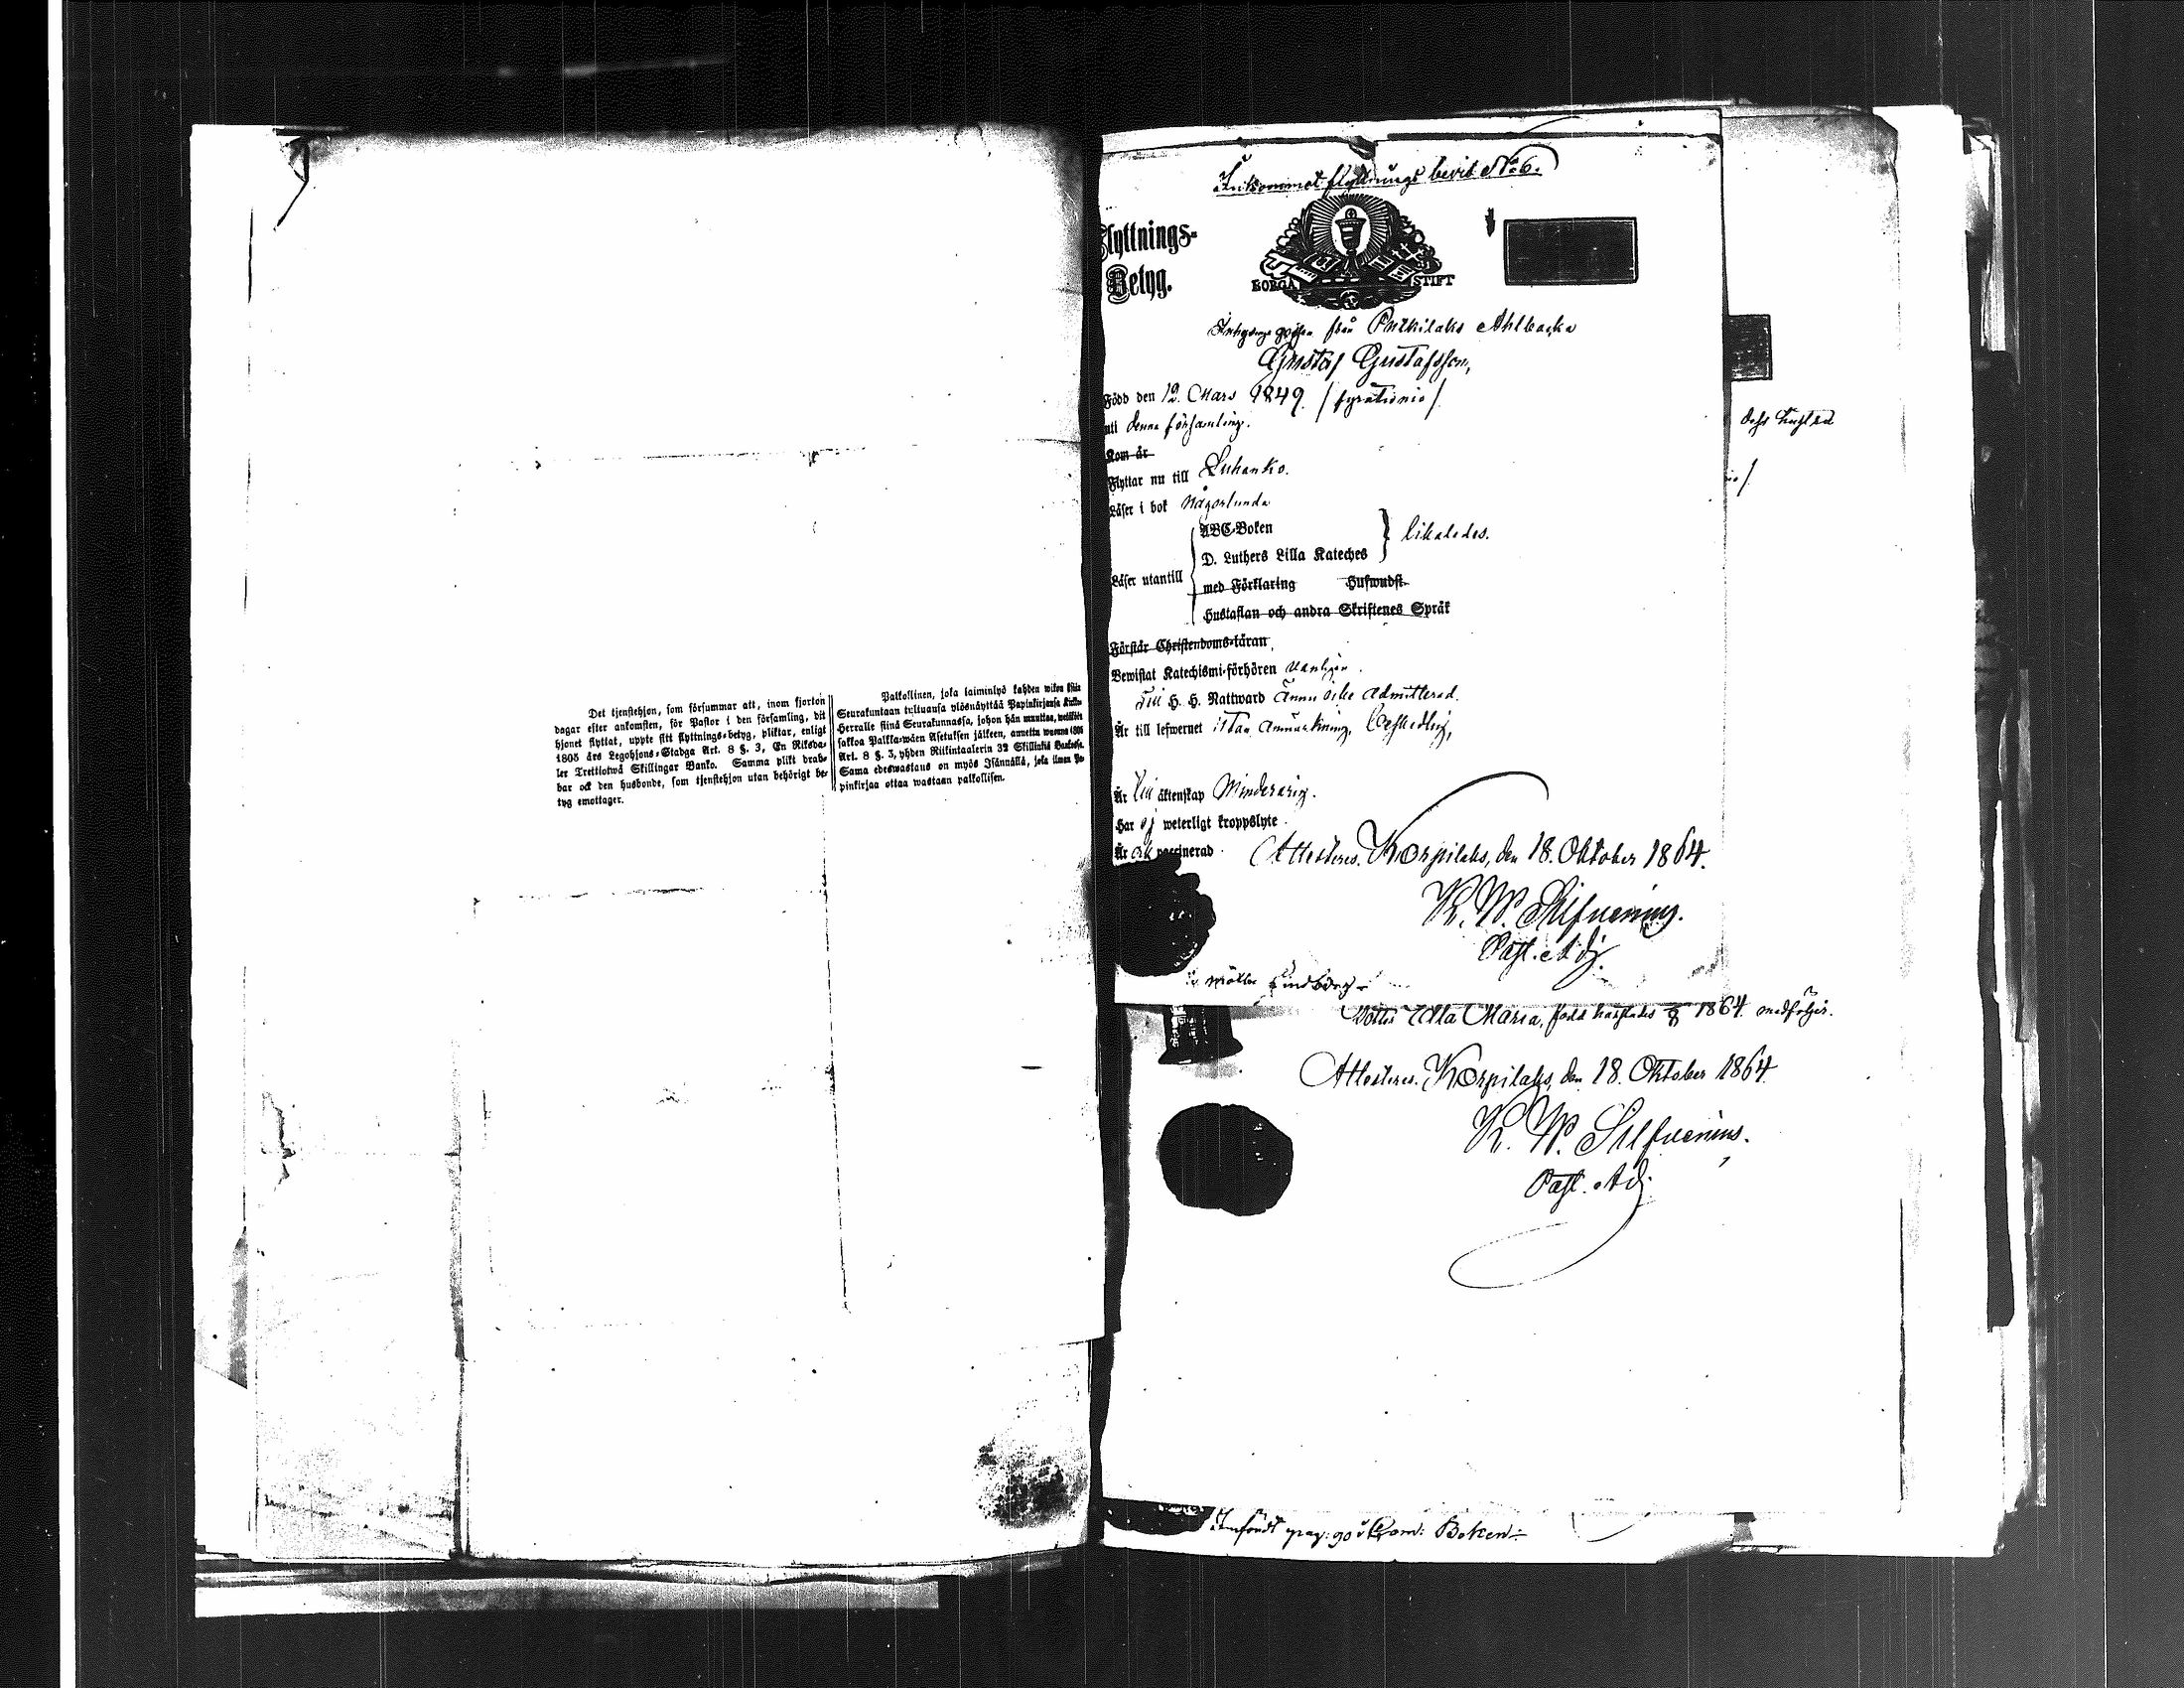 Det tjenstehjon, som försummar att, inom fjorton
dagar efter ankomsten, för Pastor i den församling, dit
hjonet flyttat, uppte sitt flyttnings-betyg, pliktar, enligt
1805 års Legohjons-Stadga Art. 8 §. 3, En Riksda-
ler Trettiotwå Skillingar Banko. Samma plikt drab-
bar ock den husbonde, som tjenstehjon utan behörigt be-
tyg emottager.
Palkollinen, joka laiminlyö kahden wikon
Seurakuntaan tultuansa ylösnäyttää Papinkirjansa
Herralle siinä Seurakunnassa, johon hän muuttaa,
sakkoa Palkka-wäen Asetuksen jälkeen, annettu wuonna 1805
Art. 8 §. 3, yhden Riikintaalerin 32 Skillinkiä
Sama edeswastaus on myös Isännällä, joka ilman Pa-
pinkirjaa ottaa wastaan palkollisen.
Inkommet flyttnings bevis No 6.
Flyttnings-
Betyg.
BORGÅ STIFT
från Putkilaks Ahlbacka
Gustaf Gustafsson,
Född den 12. Mars 1849. /fyrationio/
uti denna församling.
Kom år
Flyttar nu till Luhanko.
Läser i bok Någorlunda
ABC-Boken
D. Luthers Lilla Kateches } likaledes.
Läser utantill
med Förklaring Hufwudst.
Hustaflan och andra Skriftenes Språk
Förstår Christendoms-läran
Bewistat Katechismi-förhören vanligen.
Till H. H. Nattward ännu icke admitterad.
Är till lefwernet utan anmärkning, beskedlig,
Är till äktenskap Minderårig.
Har ej weterligt kroppslyte
Är ock vaccinerad
Attesteras. Korpilaks, den 18. Oktober 1864.
K. W. Silfvenius.
Past. Adj.
Möller Lindberg
Dotter Edla Maria, född 1864. medföljer.
Attesteras. Korpilaks, den 18. Oktober 1864.
K. W. Silfvenius.
Past. Adj.
Infördt pag: 90 i Com: Boken